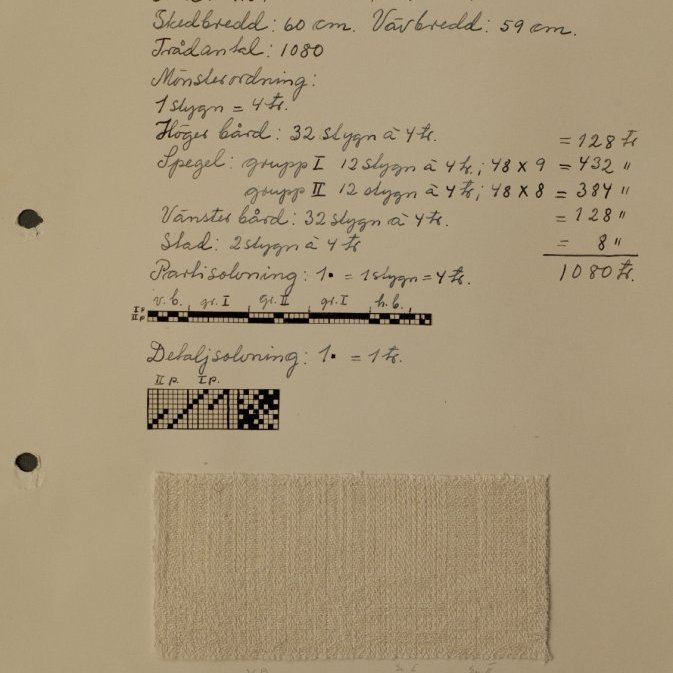 Skedbredd: 60 cm. Vävbredd: 59 cm.
Trådantal: 1080
Mönsterordning:
1 slygn = 4 tr.
Höger bård: 32 slygn à 4 tr. = 128 tr
Spegel: grupp I 12 slygn à 4 tr.; 48 x 9 = 432 "
grupp II 12 slygn à 4 tr; 48 x 8 = 384 "
Vänster bård: 32 slygn à 4 tr. = 128 "
Stad: 2 slygn à 4 tr = 8 "
1080 tr.
Partisolvning: 1▪ = 1 slygn = 4 tr.
v.b. gr. I gr. II gr. I h.b.
I p
II p.
Detaljsolvning: 1▪ = 1 tr.
II p. I p.